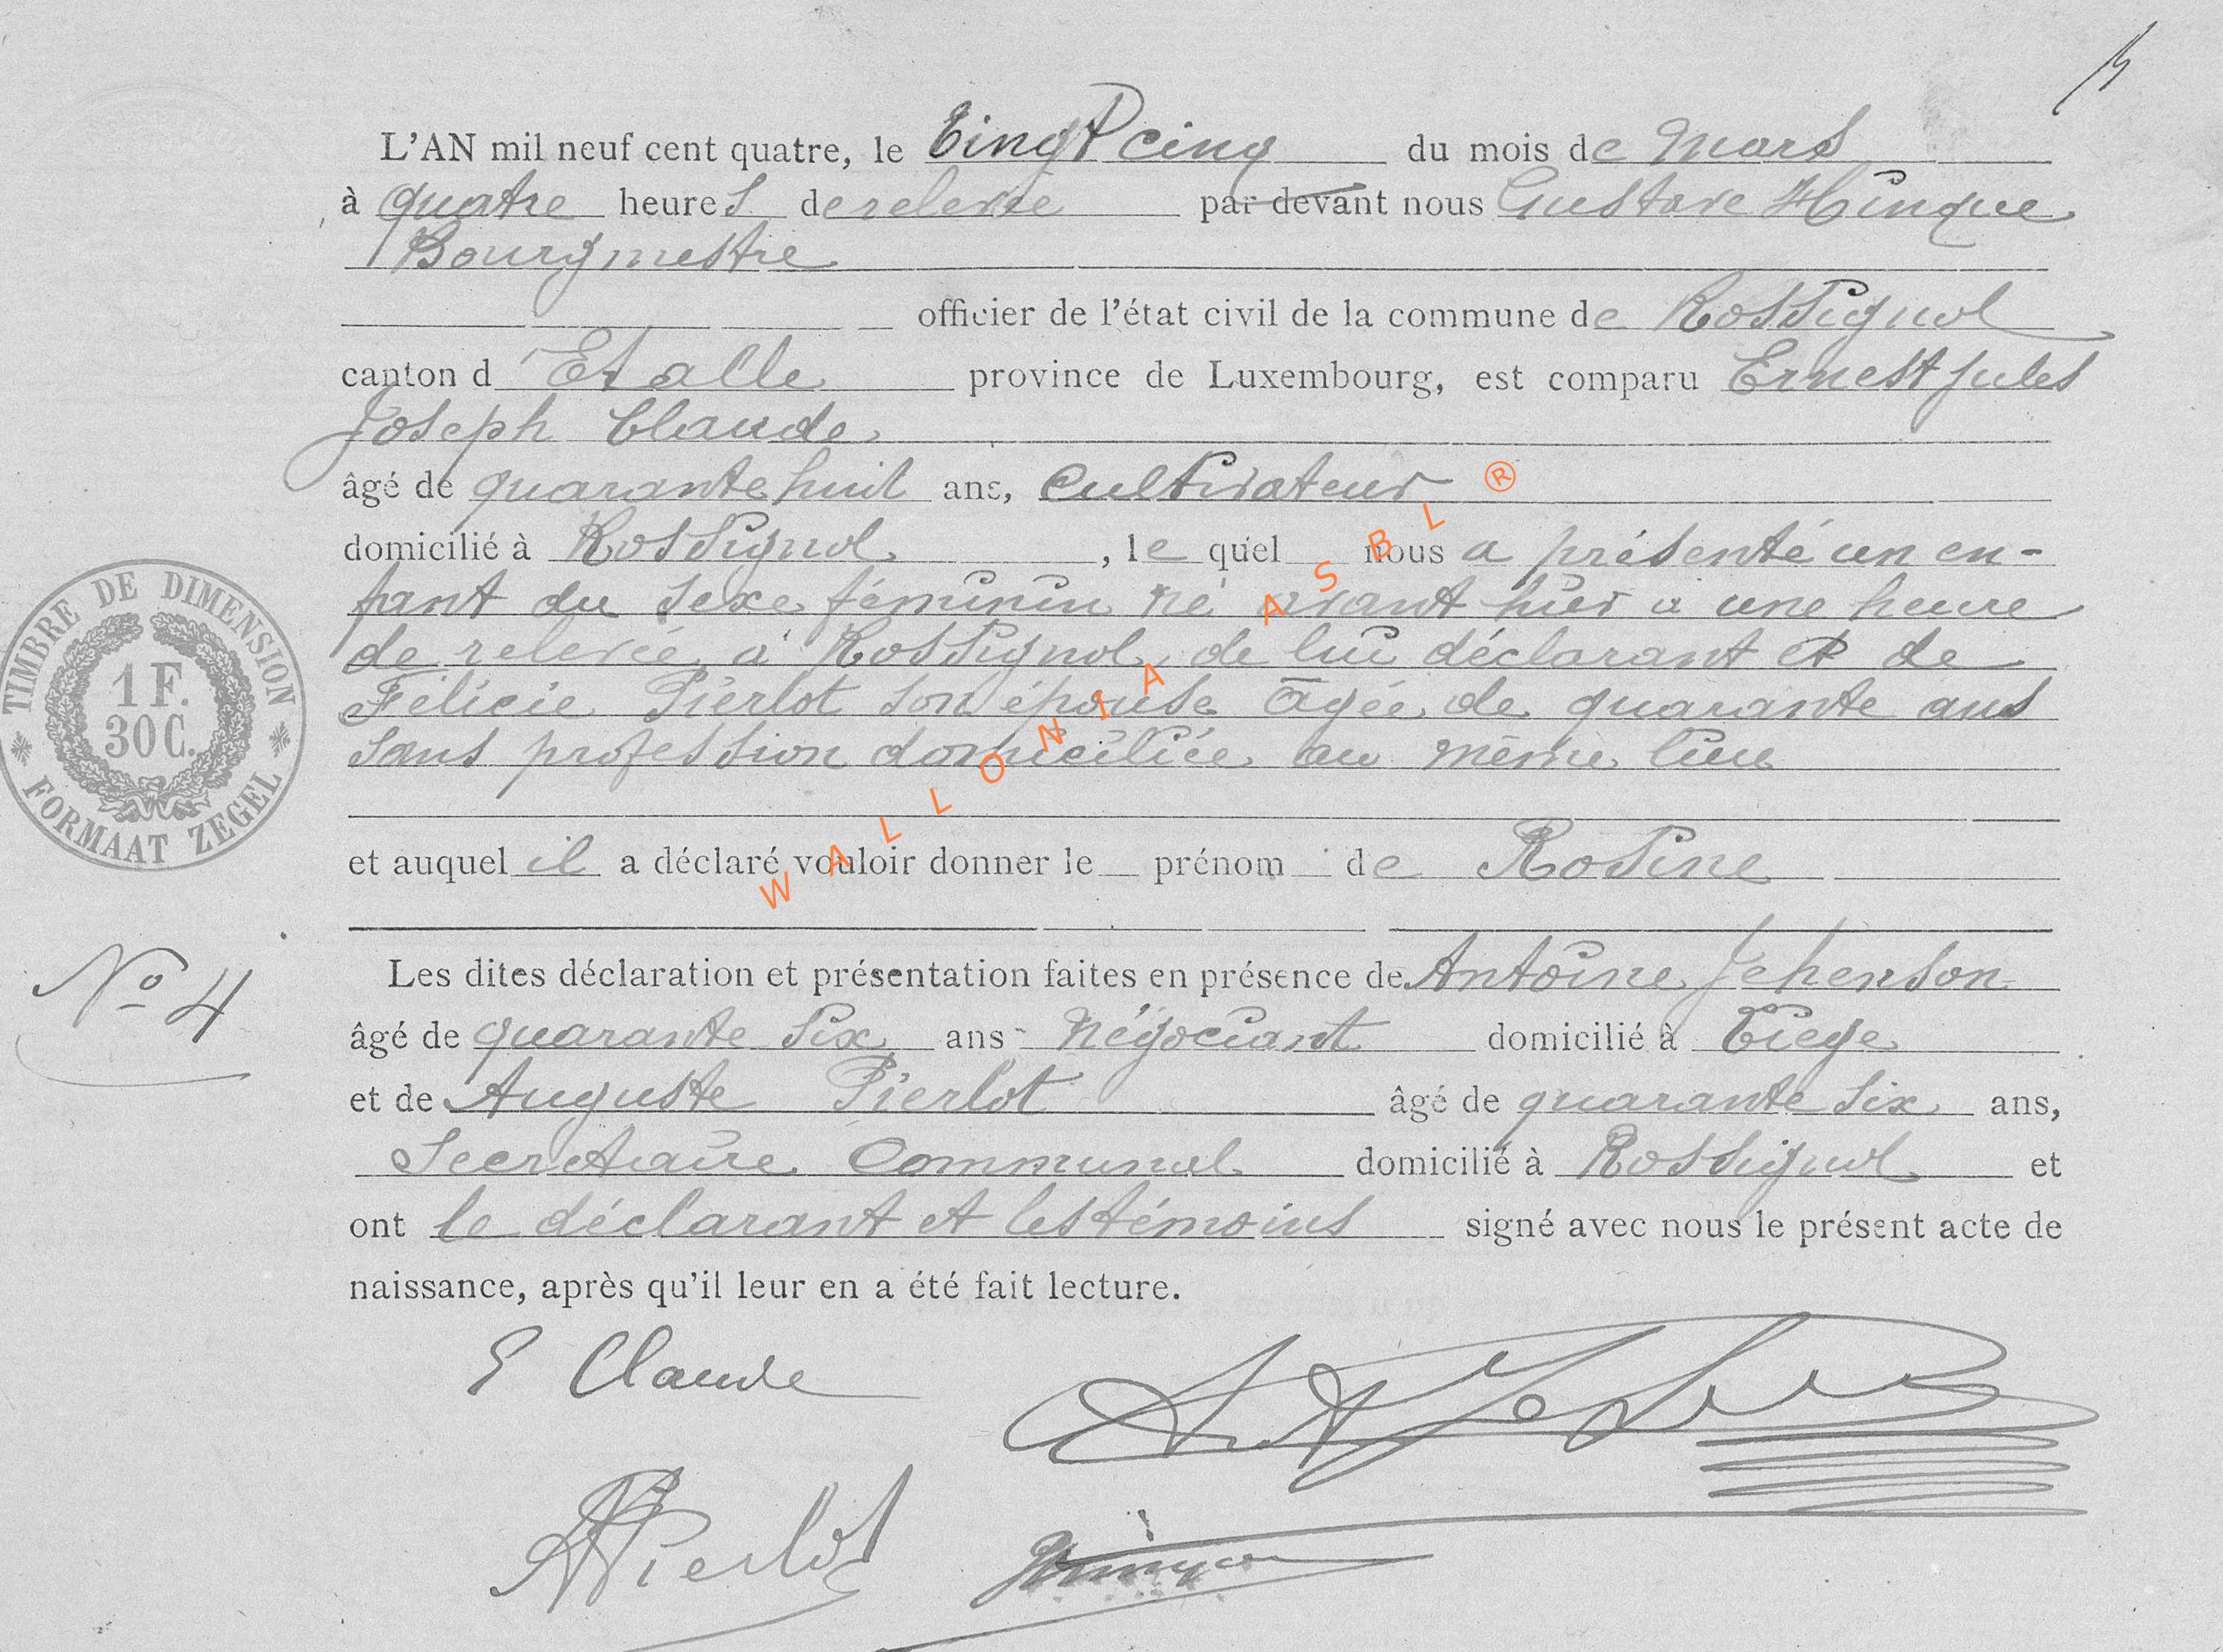 L'AN mil neuf cent quatre, le Vingt cinq du mois de Mars
à quatre heures de relevée par devant nous Gustave Hinque
Bourgmestre
officier de l'état civil de la commune de Rossignol
canton d'Etalle province de Luxembourg, est comparu Ernest Jules
Joseph Claude
âgé de quarante huit ans, cultivateur
domicilié à Rossignol, lequel nous a présenté un en-
fant du sexe féminin né avant hier à une heure
de relevée à Rossignol de lui déclarant et de
Félicie Pierlot son épouse âgée de quarante ans
sans profession domiciliée au même lieu
et auquel il a déclaré vouloir donner le prénom de Rosine
Les dites déclaration et présentation faites en présence de Antoine Jehenson
âgé de quarante six ans Négociant domicilié à
et de Auguste Pierlot âgé de quarante six ans,
Secrétaire Communal domicilié à Rossignol et
ont le déclarant et les témoins signé avec nous le présent acte de
naissance, après qu'il leur en a été fait lecture.
TIMBRE DE DIMENSION
1 F.
30 C.
FORMAAT ZEGEL
No 4
E Claude
A Pierlot
WALLONIA ASBL ®